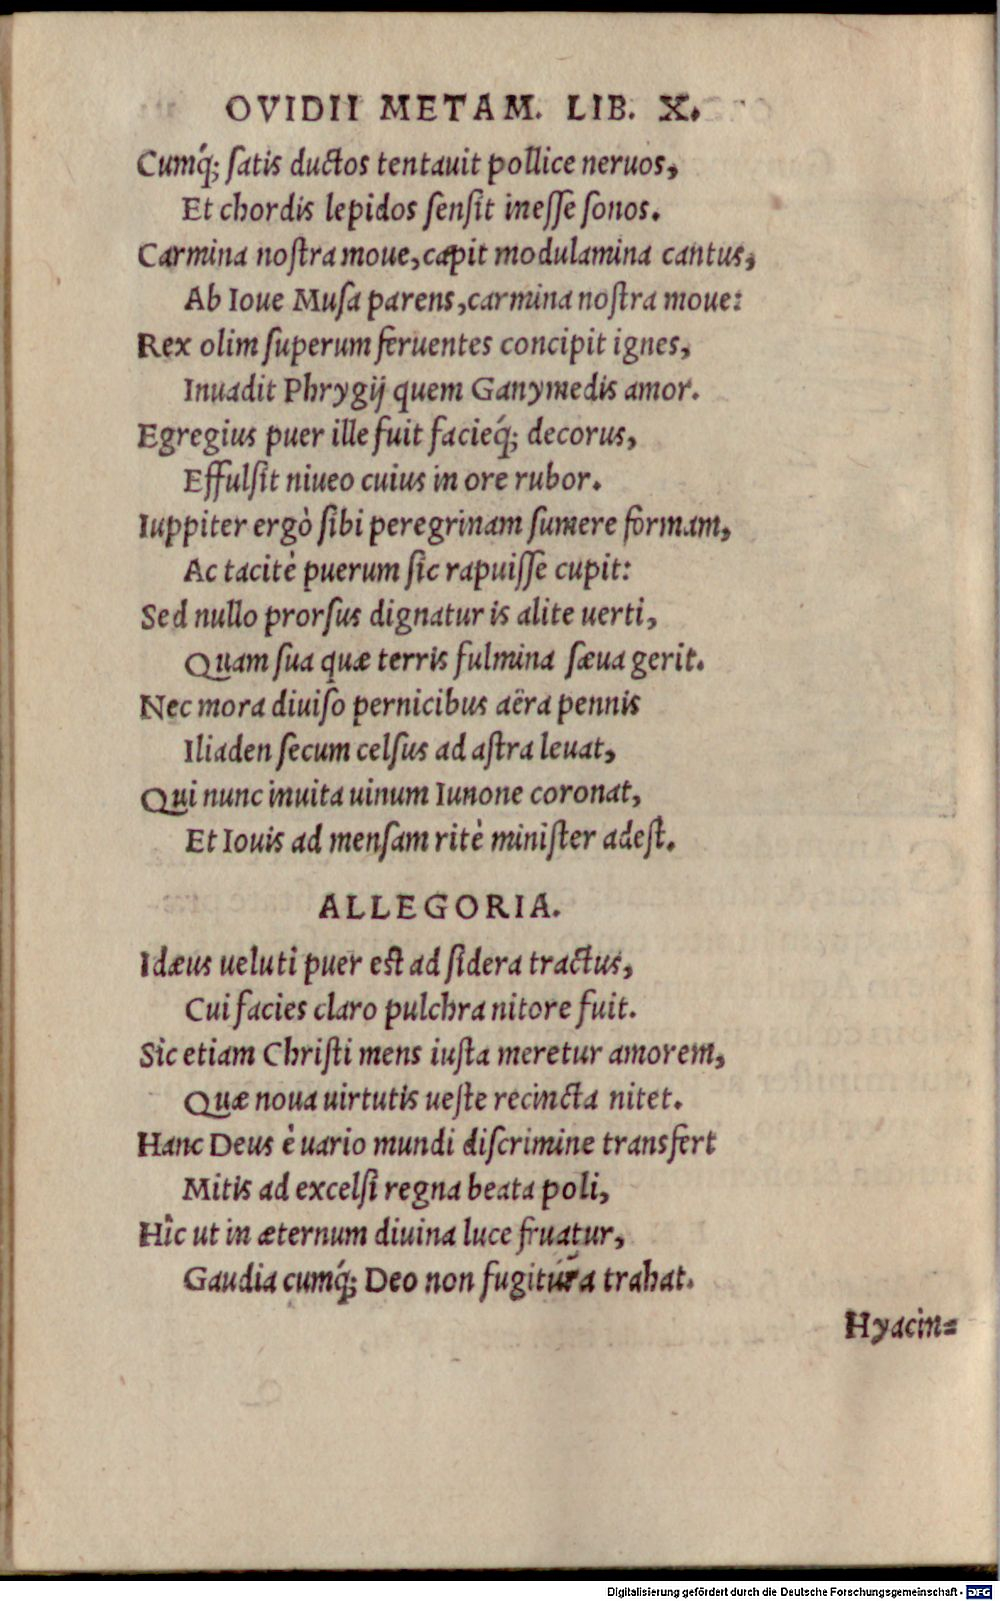 OVIDII METAM. LIB. X.
Cumq́; ſatis ductos tentauit pollice neruos,
Et chordis lepidos ſenſit ineſſe ſonos.
Carmina noſtra moue, cæpit modulamina cantus,
Ab Ioue Muſa parens, carmina noſtra moue:
Rex olim ſuperum feruentes concipit ignes,
Inuadit Phrygij quem Ganymedis amor.
Egregius puer ille fuit facieq́; decorus,
Effulſit niueo cuius in ore rubor.
Iuppiter ergò ſibi peregrinam ſumere formam,
Ac tacitè puerum ſic rapuiſſe cupit:
Sed nullo prorſus dignatur is alite uerti,
Quam ſua quæ terris fulmina ſæua gerit.
Nec mora diuiſo pernicibus aëra pennis
Iliaden ſecum celſus ad aſtra leuat,
Qui nunc inuita uinum Iunone coronat,
Et Iouis ad menſam ritè miniſter adeſt.
ALLEGORIA.
Idæus ueluti puer est ad ſidera tractus,
Cui facies claro pulchra nitore fuit.
Sic etiam Chriſti mens iuſta meretur amorem,
Quæ noua uirtutis ueſte recincta nitet.
Hanc Deus è uario mundi diſcrimine transfert
Mitis ad excelſi regna beata poli,
Hîc ut in æternum diuina luce fruatur,
Gaudia cumq́; Deo non fugitura trahat.
Hyacin=
Digitalisierung gefördert durch die Deutsche Forschungsgemeinschaft - DFG